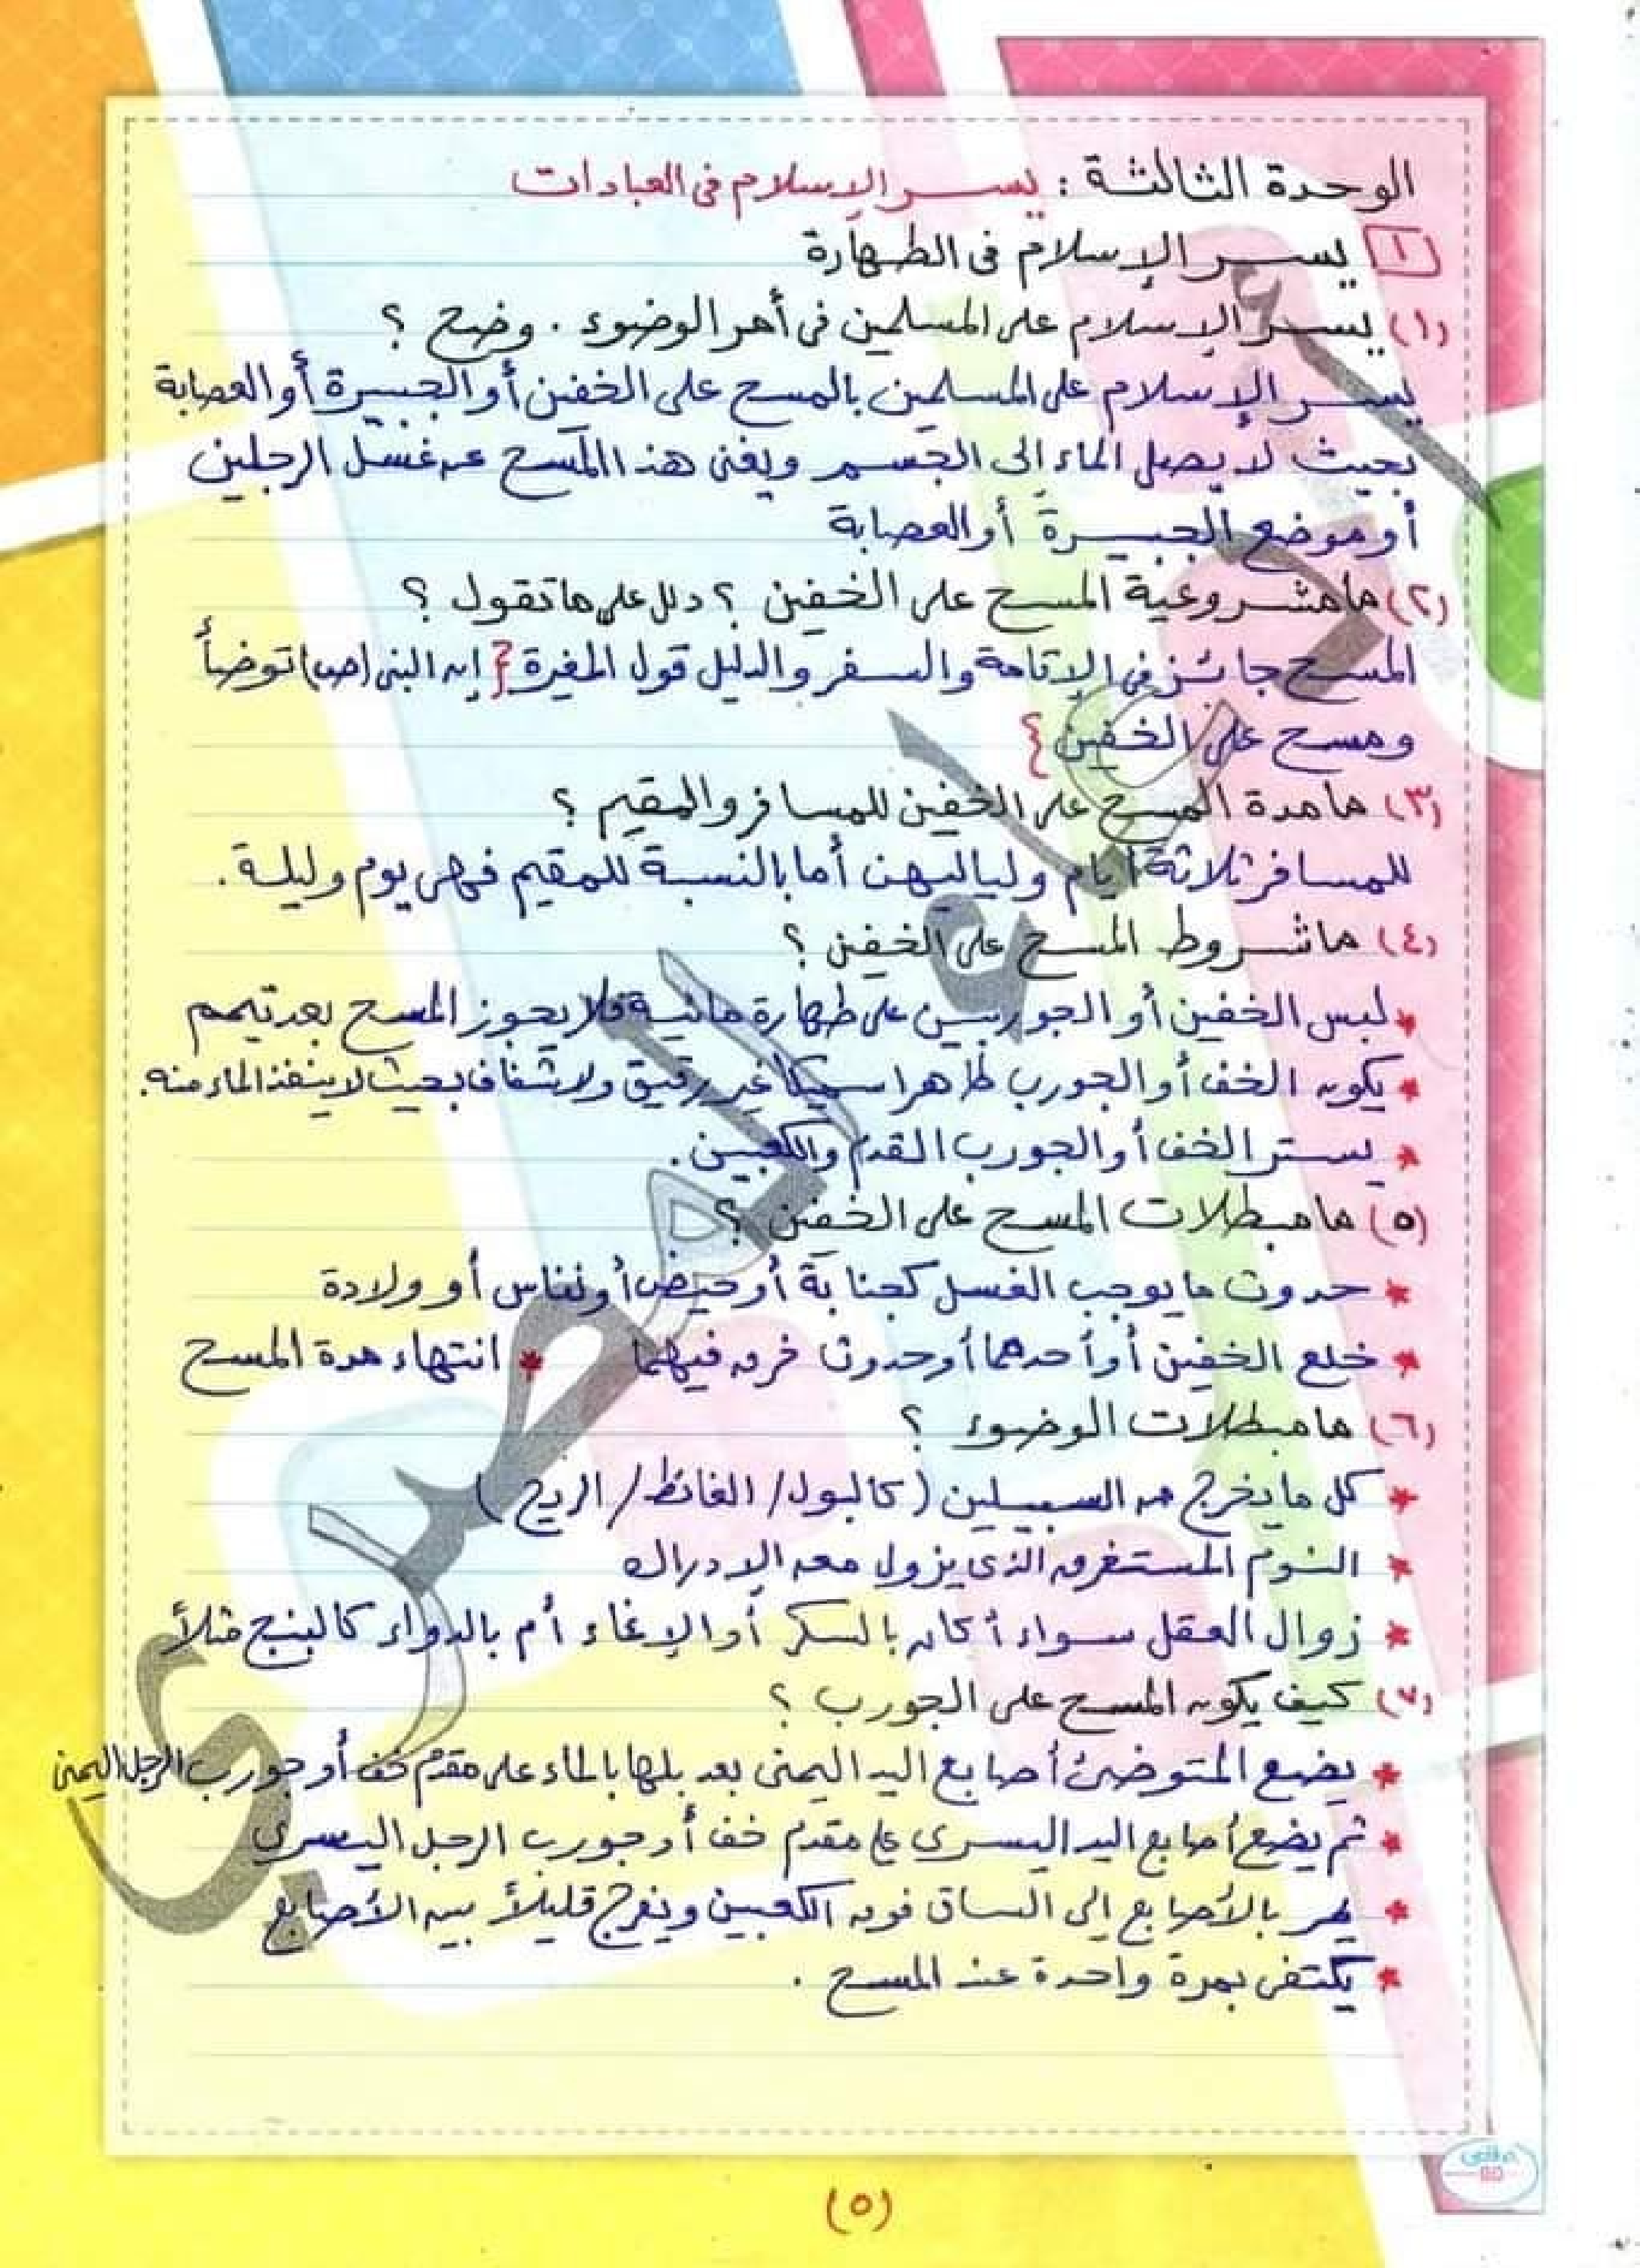 الوحدة الثالثة : يسر الإسلام فى العبادات
١ يسر الإسلام فى الطهارة
(١) يسر الإسلام على المسلمين فى أمر الوضوء . وضح ؟
يسر الإسلام على المسلمين بالمسح على الخفين أو الجبيرة أو العصابة
بحيث لا يصل الماء إلى الجسم ويغنى هذا المسح عن غسل الرجلين
أو موضع الجبيرة أو العصابة
(٢) ما مشروعية المسح على الخفين ؟ دلل على ما تقول ؟
المسح جائز فى الإقامة والسفر والدليل قول المغيرة { إن النبى (ص) توضأ
ومسح على الخفين }
(٣) ما مدة المسح على الخفين للمسافر والمقيم ؟
للمسافر ثلاثة أيام ولياليهن أما بالنسبة للمقيم فهى يوم وليلة .
(٤) ما شروط المسح على الخفين ؟
* لبس الخفين أو الجوربين على طهارة مائية فلا يجوز المسح بعد تيمم
* يكون الخف أو الجورب طاهرا سميكا غير رقيق ولا شفاف بحيث لا ينفذ الماء منه .
* يستر الخف أو الجورب القدم والكعبين .
(٥) ما مبطلات المسح على الخفين ؟
* حدوث ما يوجب الغسل كجنابة أو حيض أو نفاس أو ولادة
* خلع الخفين أو أحدهما أو حدوث خرق فيهما * انتهاء مدة المسح
(٦) ما مبطلات الوضوء ؟
* كل ما يخرج من السبيلين ( كالبول / الغائط / الريح )
* النوم المستغرق الذى يزول معه الإدراك
* زوال العقل سواء أكان بالسكر أو الإغماء أم بالدواء كالبنج مثلاً
(٧) كيف يكون المسح على الجورب ؟
* يضع المتوضئ أصابع اليد اليمنى بعد بلها بالماء على مقدم خف أو جورب الرجل اليمنى
* ثم يضع أصابع اليد اليسرى على مقدم خف أو جورب الرجل اليسرى
* يمر بالأصابع إلى الساق فوق الكعبين ويفرج قليلاً بين الأصابع
* يكتفى بمرة واحدة عند المسح .
(٥)